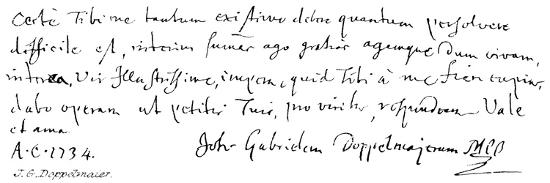 Certè Tibi me tantum existimo debere quantum persolvere
difficile est, interim summas ago gratias agamque dum vivam,
interea, Vir Illustrissime, impera, quid Tibi à me fieri cupias,
dabo operam ut petitis Tuis, pro virili, respondeam Vale
et ama
A. C. 1734. Joh. Gabrielem Doppelmajerum
J. G. Doppelmaier.